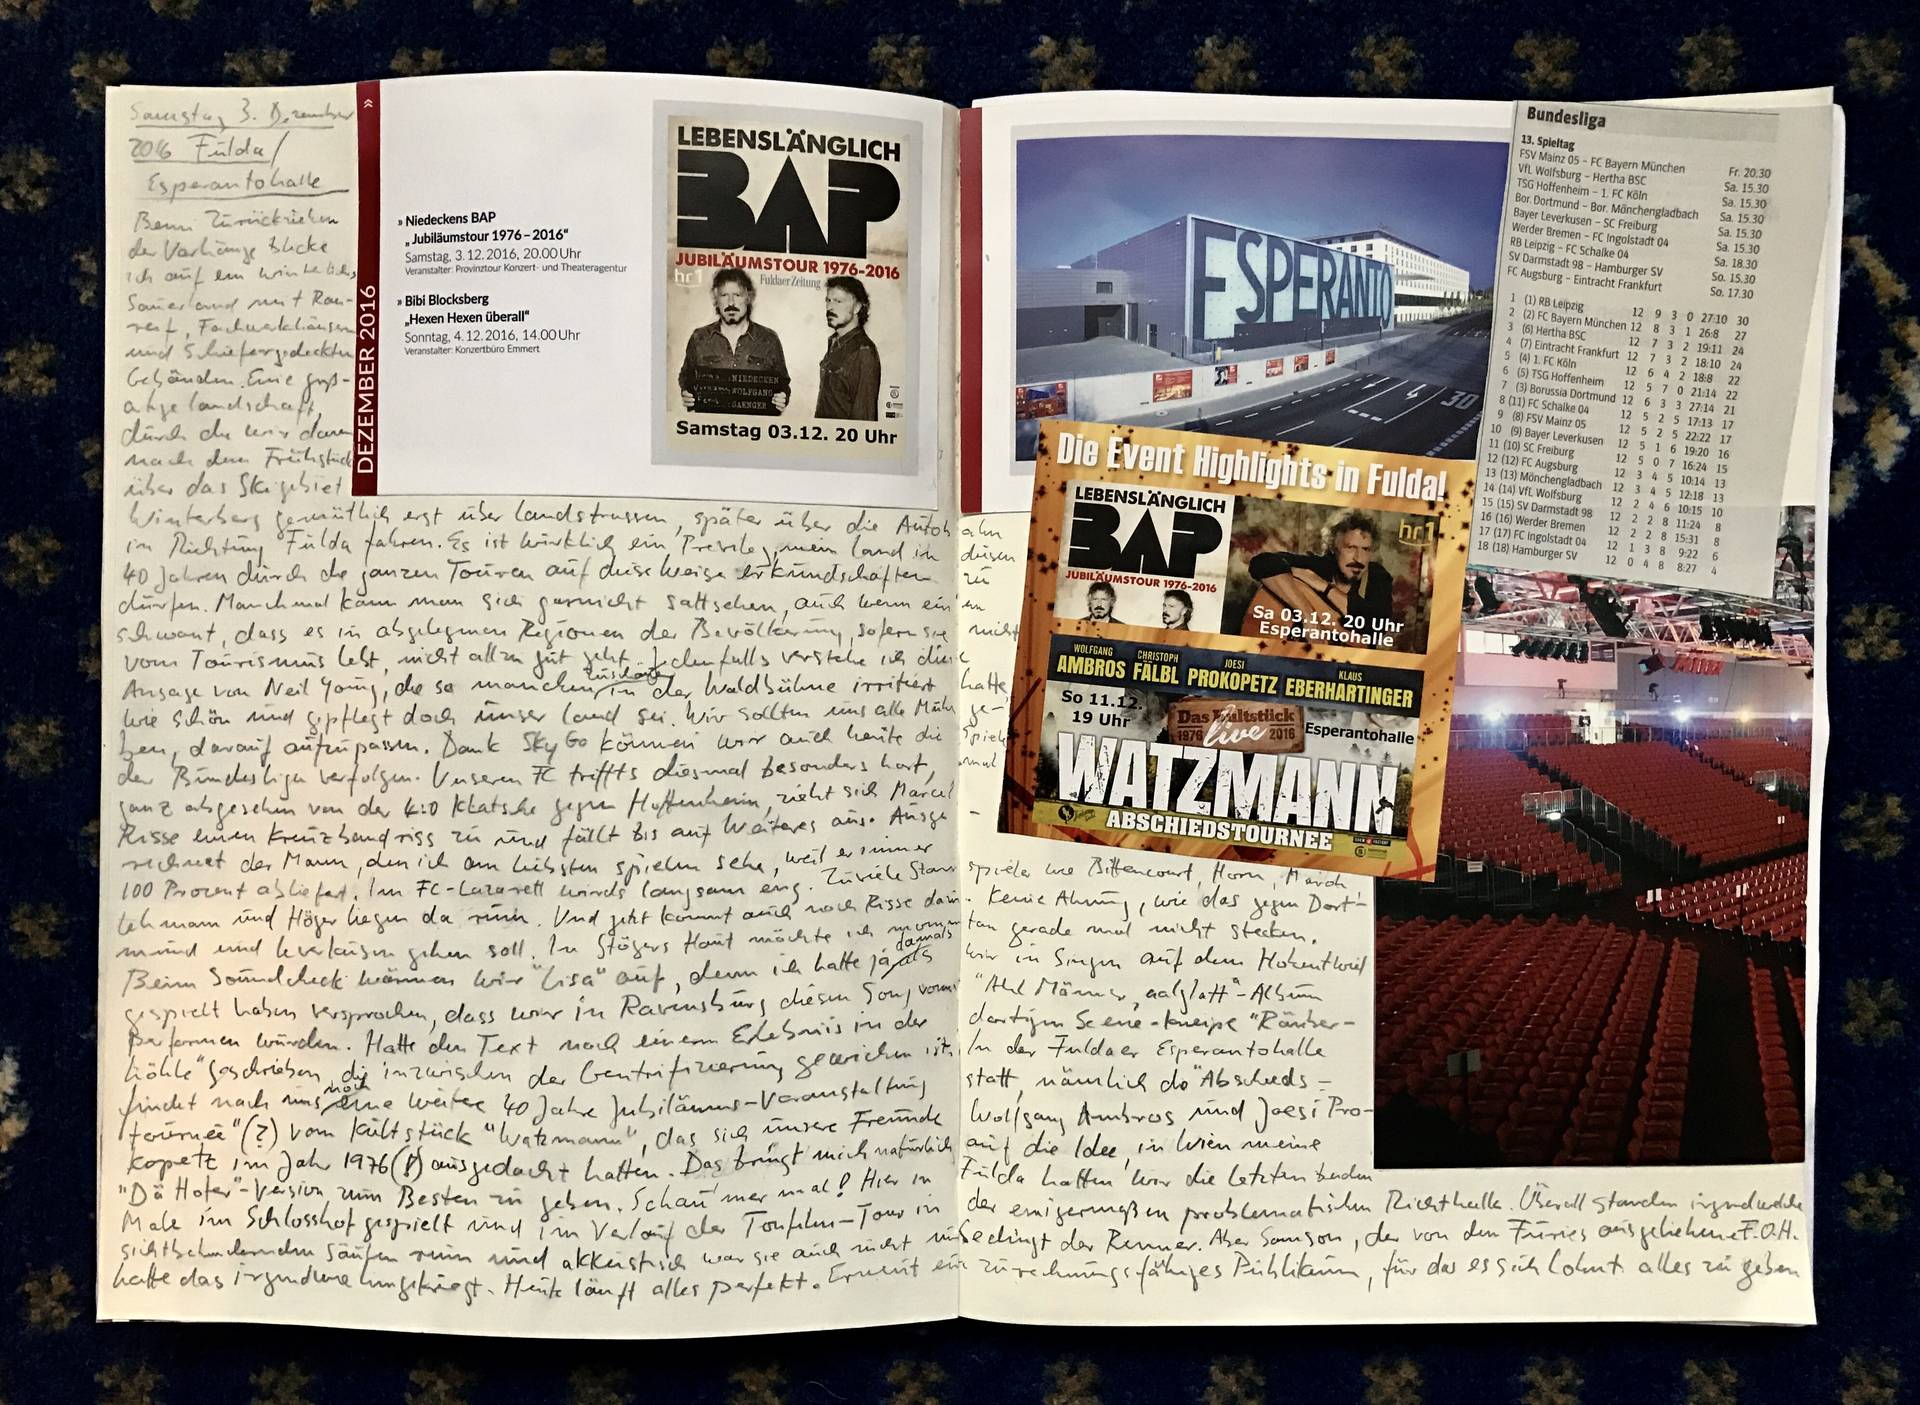 Samstag 3. Dezember
2016 Fulda/
Esperantohalle
Beim Zurückziehen
der Vorhänge blicke
ich auf ein winterliches
Sauerland mit Rau-
reif, Fachwerkhäusern
und schiefergedeckten
Gebäuden. Eine groß-
artige Landschaft,
durch die wir dann
nach dem Frühstück
über das Skigebiet
Winterberg gemütlich erst über Landstrassen, später über die Autobahn
in Richtung Fulda fahren. Es ist wirklich ein Privileg, mein Land in
40 Jahren durch die ganzen Touren auf diese Weise erkundschaften zu
dürfen. Manchmal kann man sich garnicht sattsehen, auch wenn ein
schwant, dass es in abgelegenen Regionen der Bevölkerung, sofern sie nicht
vom Tourismus lebt, nicht allzu gut geht. Jedenfalls verstehe ich die
Ansage von Neil Young, die so manchen Zuschauer in der Waldbühne irritiert hatte,
wie schön und gepflegt doch unser Land sei. Wir sollten uns alle Mühe ge-
ben, darauf aufzupassen. Dank Sky Go können wir auch heute die Spiele
der Bundesliga verfolgen. Unseren FC triffts diesmal besonders hart,
ganz abgesehen von der 4:0 Klatsche gegen Hoffenheim, zieht sich Marcel
Risse einen Kreuzbandriss zu und fällt bis auf Weiteres aus. Ausge-
rechnet der Mann, den ich am liebsten spielen sehe, weil er immer
100 Prozent abliefert. Im FC-Lazarett wirds langsam eng. Zuviele Stammspieler wie Bittencourt, Horn,
Lehmann und Höger liegen da rum. Und jetzt kommt auch noch Risse dazu. Keine Ahnung, wie das gegen Dort-
mund und Leverkusen gehen soll. In Stögers Haut möchte ich momentan gerade mal nicht stecken.
Beim Soundcheck wärmen wir "Lisa" auf, denn ich hatte ja damals wir in Singen auf dem Hohentwiel
gespielt haben versprochen, dass wir in Ravensburg diesen Song vom "Ahl Männer, aalglatt"-Album
performen würden. Hatte den Text nach einem Erlebnis in der dortigen Scene-Kneipe "Räuber-
höhle" geschrieben, die inzwischen der Gentrifizierung gewichen ist. In der Fuldaer Esperantohalle
findet nach uns noch eine weitere 40 Jahre Jubiläums-Veranstaltung statt, nämlich die "Abschieds-
tournée" (?) vom Kultstück "Watzmann", das sich unsere Freunde Wolfgang Ambros und Joesi Pro-
kopetz im Jahr 1976 (!) ausgedacht hatten. Das bringt mich natürlich auf die Idee, in Wien meine
"Dä Hofer"-Version zum Besten zu geben. Schau'mer mal! Hier in Fulda hatten wir die letzten beiden
Male im Schlosshof gespielt und im Verlauf der Tour in der einigermaßen problematischen Richthalle. Überall standen irgendwelche
sichtbehindernden Säulen rum und akkustisch war sie auch nicht unbedingt der Renner. Aber Samson, der von den Furies ausgeliehene F.O.H.
hatte das irgendwie hingekriegt. Heute läuft alles perfekt. Erneut ein zurechnungsfähiges Publikum, für das es sich lohnt alles zu geben
DEZEMBER 2016 »
» Niedeckens BAP
„Jubiläumstour 1976 – 2016“
Samstag, 3.12.2016, 20.00 Uhr
Veranstalter: Provinztour Konzert- und Theateragentur
» Bibi Blocksberg
„Hexen Hexen überall“
Sonntag, 4.12.2016, 14.00 Uhr
Veranstalter: Konzertbüro Emmert
LEBENSLÄNGLICH
BAP
JUBILÄUMSTOUR 1976-2016
hr1 Fuldaer Zeitung
NIEDECKEN
WOLFGANG
SAENGER
Samstag 03.12. 20 Uhr
ESPERANTO
30
Die Event Highlights in Fulda!
LEBENSLÄNGLICH
BAP
JUBILÄUMSTOUR 1976-2016
hr1
Sa 03.12. 20 Uhr
Esperantohalle
WOLFGANG AMBROS CHRISTOPH FÄLBL JOESI PROKOPETZ KLAUS EBERHARTINGER
So 11.12.
19 Uhr
Das Kultstück
1976 live 2016
Esperantohalle
WATZMANN
ABSCHIEDSTOURNEE
Bundesliga
13. Spieltag
FSV Mainz 05 – FC Bayern München Fr. 20.30
VfL Wolfsburg – Hertha BSC Sa. 15.30
TSG Hoffenheim – 1. FC Köln Sa. 15.30
Bor. Dortmund – Bor. Mönchengladbach Sa. 15.30
Bayer Leverkusen – SC Freiburg Sa. 15.30
Werder Bremen – FC Ingolstadt 04 Sa. 15.30
RB Leipzig – FC Schalke 04 Sa. 18.30
SV Darmstadt 98 – Hamburger SV So. 15.30
FC Augsburg – Eintracht Frankfurt So. 17.30
1 (1) RB Leipzig 12 9 3 0 27:10 30
2 (2) FC Bayern München 12 8 3 1 26:8 27
3 (6) Hertha BSC 12 7 3 2 19:11 24
4 (7) Eintracht Frankfurt 12 7 3 2 18:10 24
5 (4) 1. FC Köln 12 6 4 2 18:8 22
6 (5) TSG Hoffenheim 12 5 7 0 21:14 22
7 (3) Borussia Dortmund 12 6 3 3 27:14 21
8 (11) FC Schalke 04 12 5 2 5 17:13 17
9 (8) FSV Mainz 05 12 5 2 5 22:22 17
10 (9) Bayer Leverkusen 12 5 1 6 19:20 16
11 (10) SC Freiburg 12 5 0 7 16:24 15
12 (12) FC Augsburg 12 3 4 5 10:14 13
13 (13) Mönchengladbach 12 3 4 5 12:18 13
14 (14) VfL Wolfsburg 12 2 4 6 10:15 10
15 (15) SV Darmstadt 98 12 2 2 8 11:24 8
16 (16) Werder Bremen 12 2 2 8 15:31 8
17 (17) FC Ingolstadt 04 12 1 3 8 9:22 6
18 (18) Hamburger SV 12 0 4 8 8:27 4